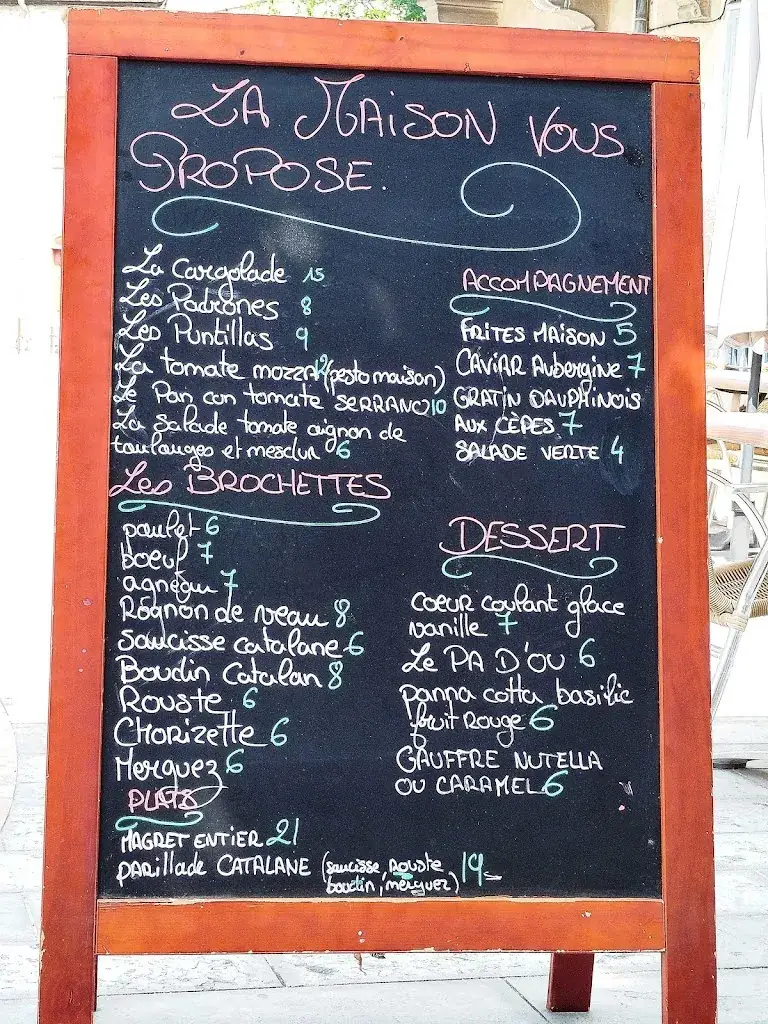 LA MAISON VOUS
PROPOSE.
La Cargolade 15
Les Padrones 8
Les Puntillas 9
La tomate mozza 12 (pesto maison)
Le Pan con tomate SERRANO 10
La Salade tomate oignon de
toulouges et mesclun 6
Les BROCHETTES
poulet 6
boeuf 7
agneau 7
Rognon de veau 8
saucisse catalane 6
Boudin Catalan 8
Rouste 6
Chorizette 6
Merguez 6
PLATS
MAGRET ENTIER 21
PARillade CATALANE (saucisse, Rouste
boudin, merguez) 19
ACCOMPAGNEMENT
FRITES MAISON 5
CAVIAR Aubergine 7
GRATIN DAUPHINOIS
AUX CÈPES 7
SALADE VERTE 4
DESSERT
COEUR coulant glace
vanille 7
Le PA D'OU 6
panna cotta basilic
fruit Rouge 6
GAUFFRE NUTELLA
OU CARAMEL 6